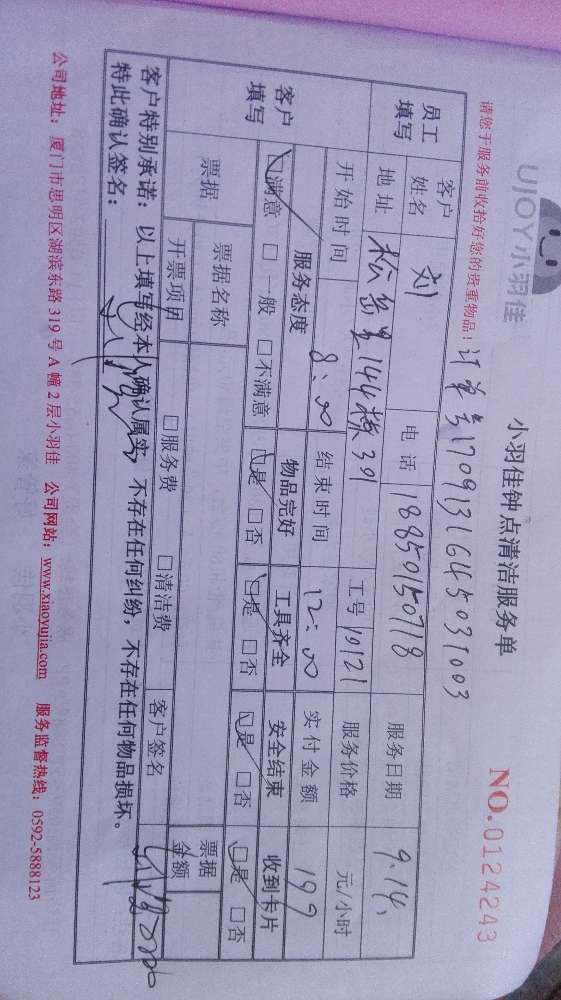 UJOY小羽佳
小羽佳钟点清洁服务单
NO.0124243
请您于服务前收拾好您的贵重物品！
订单号1709131645031003
员工填写
客户姓名 刘 电话 18859150718 服务日期 9.14.
地址 松岳里144楼301 工号 10121 服务价格 元/小时
客户填写
开始时间 8:00 结束时间 12:00 实付金额 199
服务态度 物品完好 工具齐全 安全结束 收到卡片
☑满意 □一般 □不满意 ☑是 □否 ☑是 □否 ☑是 □否 ☑是 □否
票据 票据名称 票据金额
开票项目 □服务费 □清洁费 客户签名
客户特别承诺：以上填写经本人确认属实，不存在任何纠纷，不存在任何物品损坏。
特此确认签名：
公司地址：厦门市思明区湖滨东路319号A幢2层小羽佳 公司网站：www.xiaoyujia.com 服务监督热线：0592-5888123